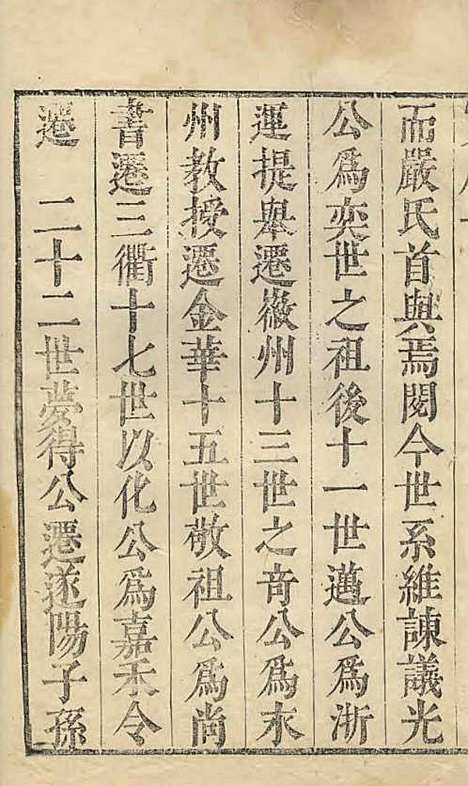 而嚴氏首與焉閱今世系維諫議光
公爲奕世之祖後十一世邁公爲浙
運提舉遷徽州十三世之奇公爲衣
州教授遷金華十五世敬祖公爲尚
書遷三衢十七世以化公爲嘉禾令
遷　二十二世夢得公遷遂陽子孫